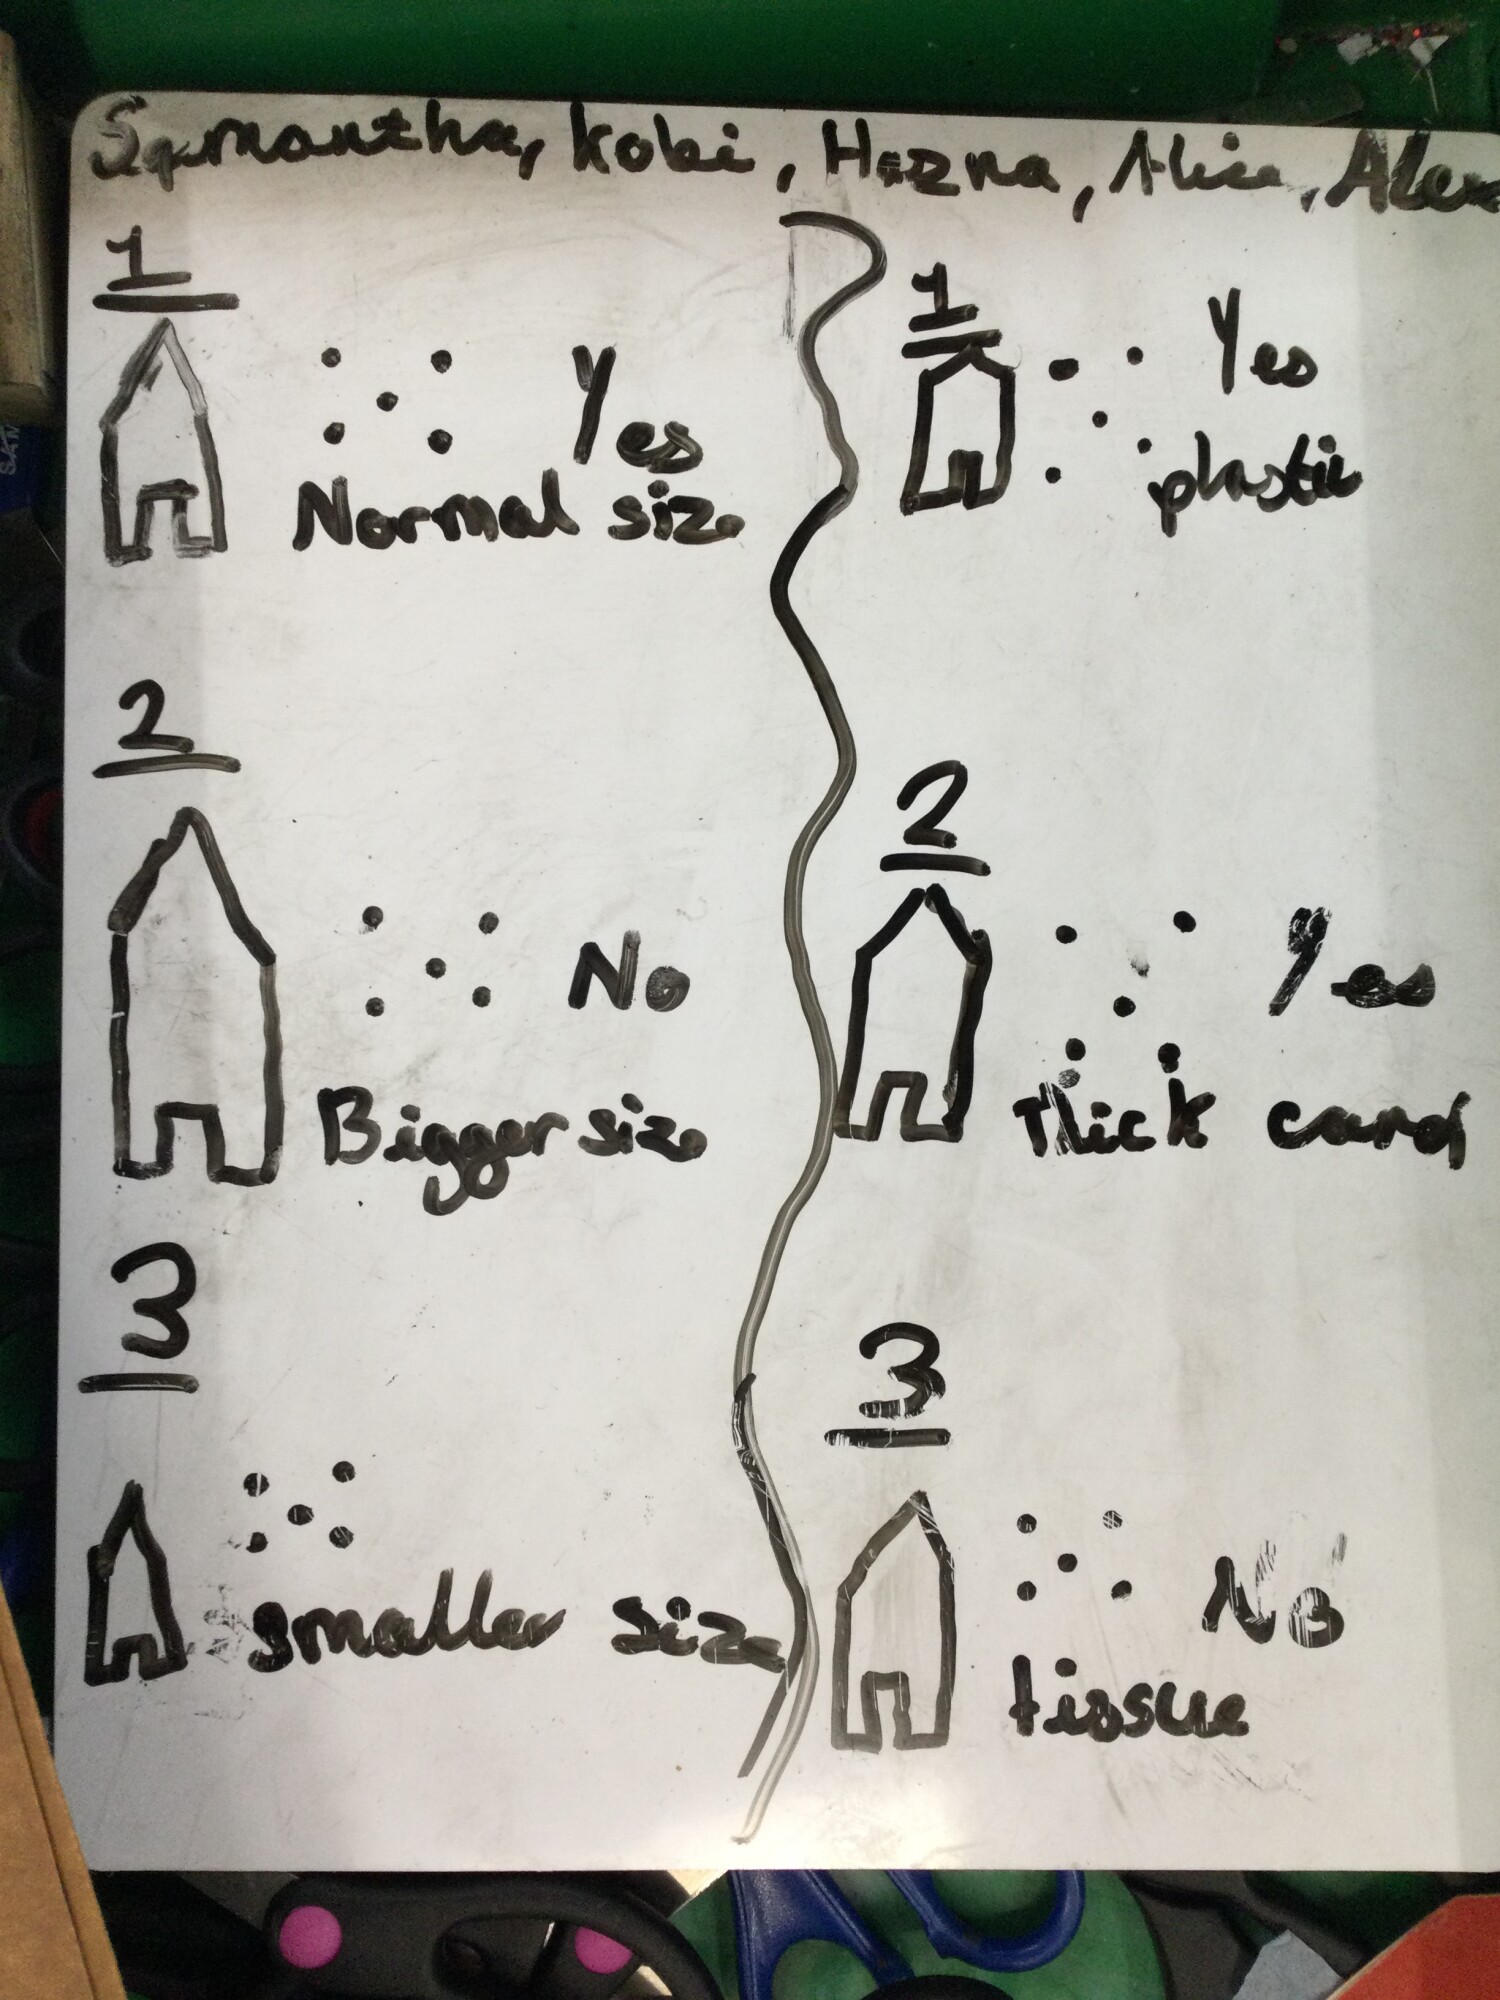 Samantha, Kobi, Hazna, Alice, Alex
1
Yes
Normal size
2
No
Bigger size
3
smaller size
1
Yes
plastic
2
Yes
Thick card
3
No
tissue